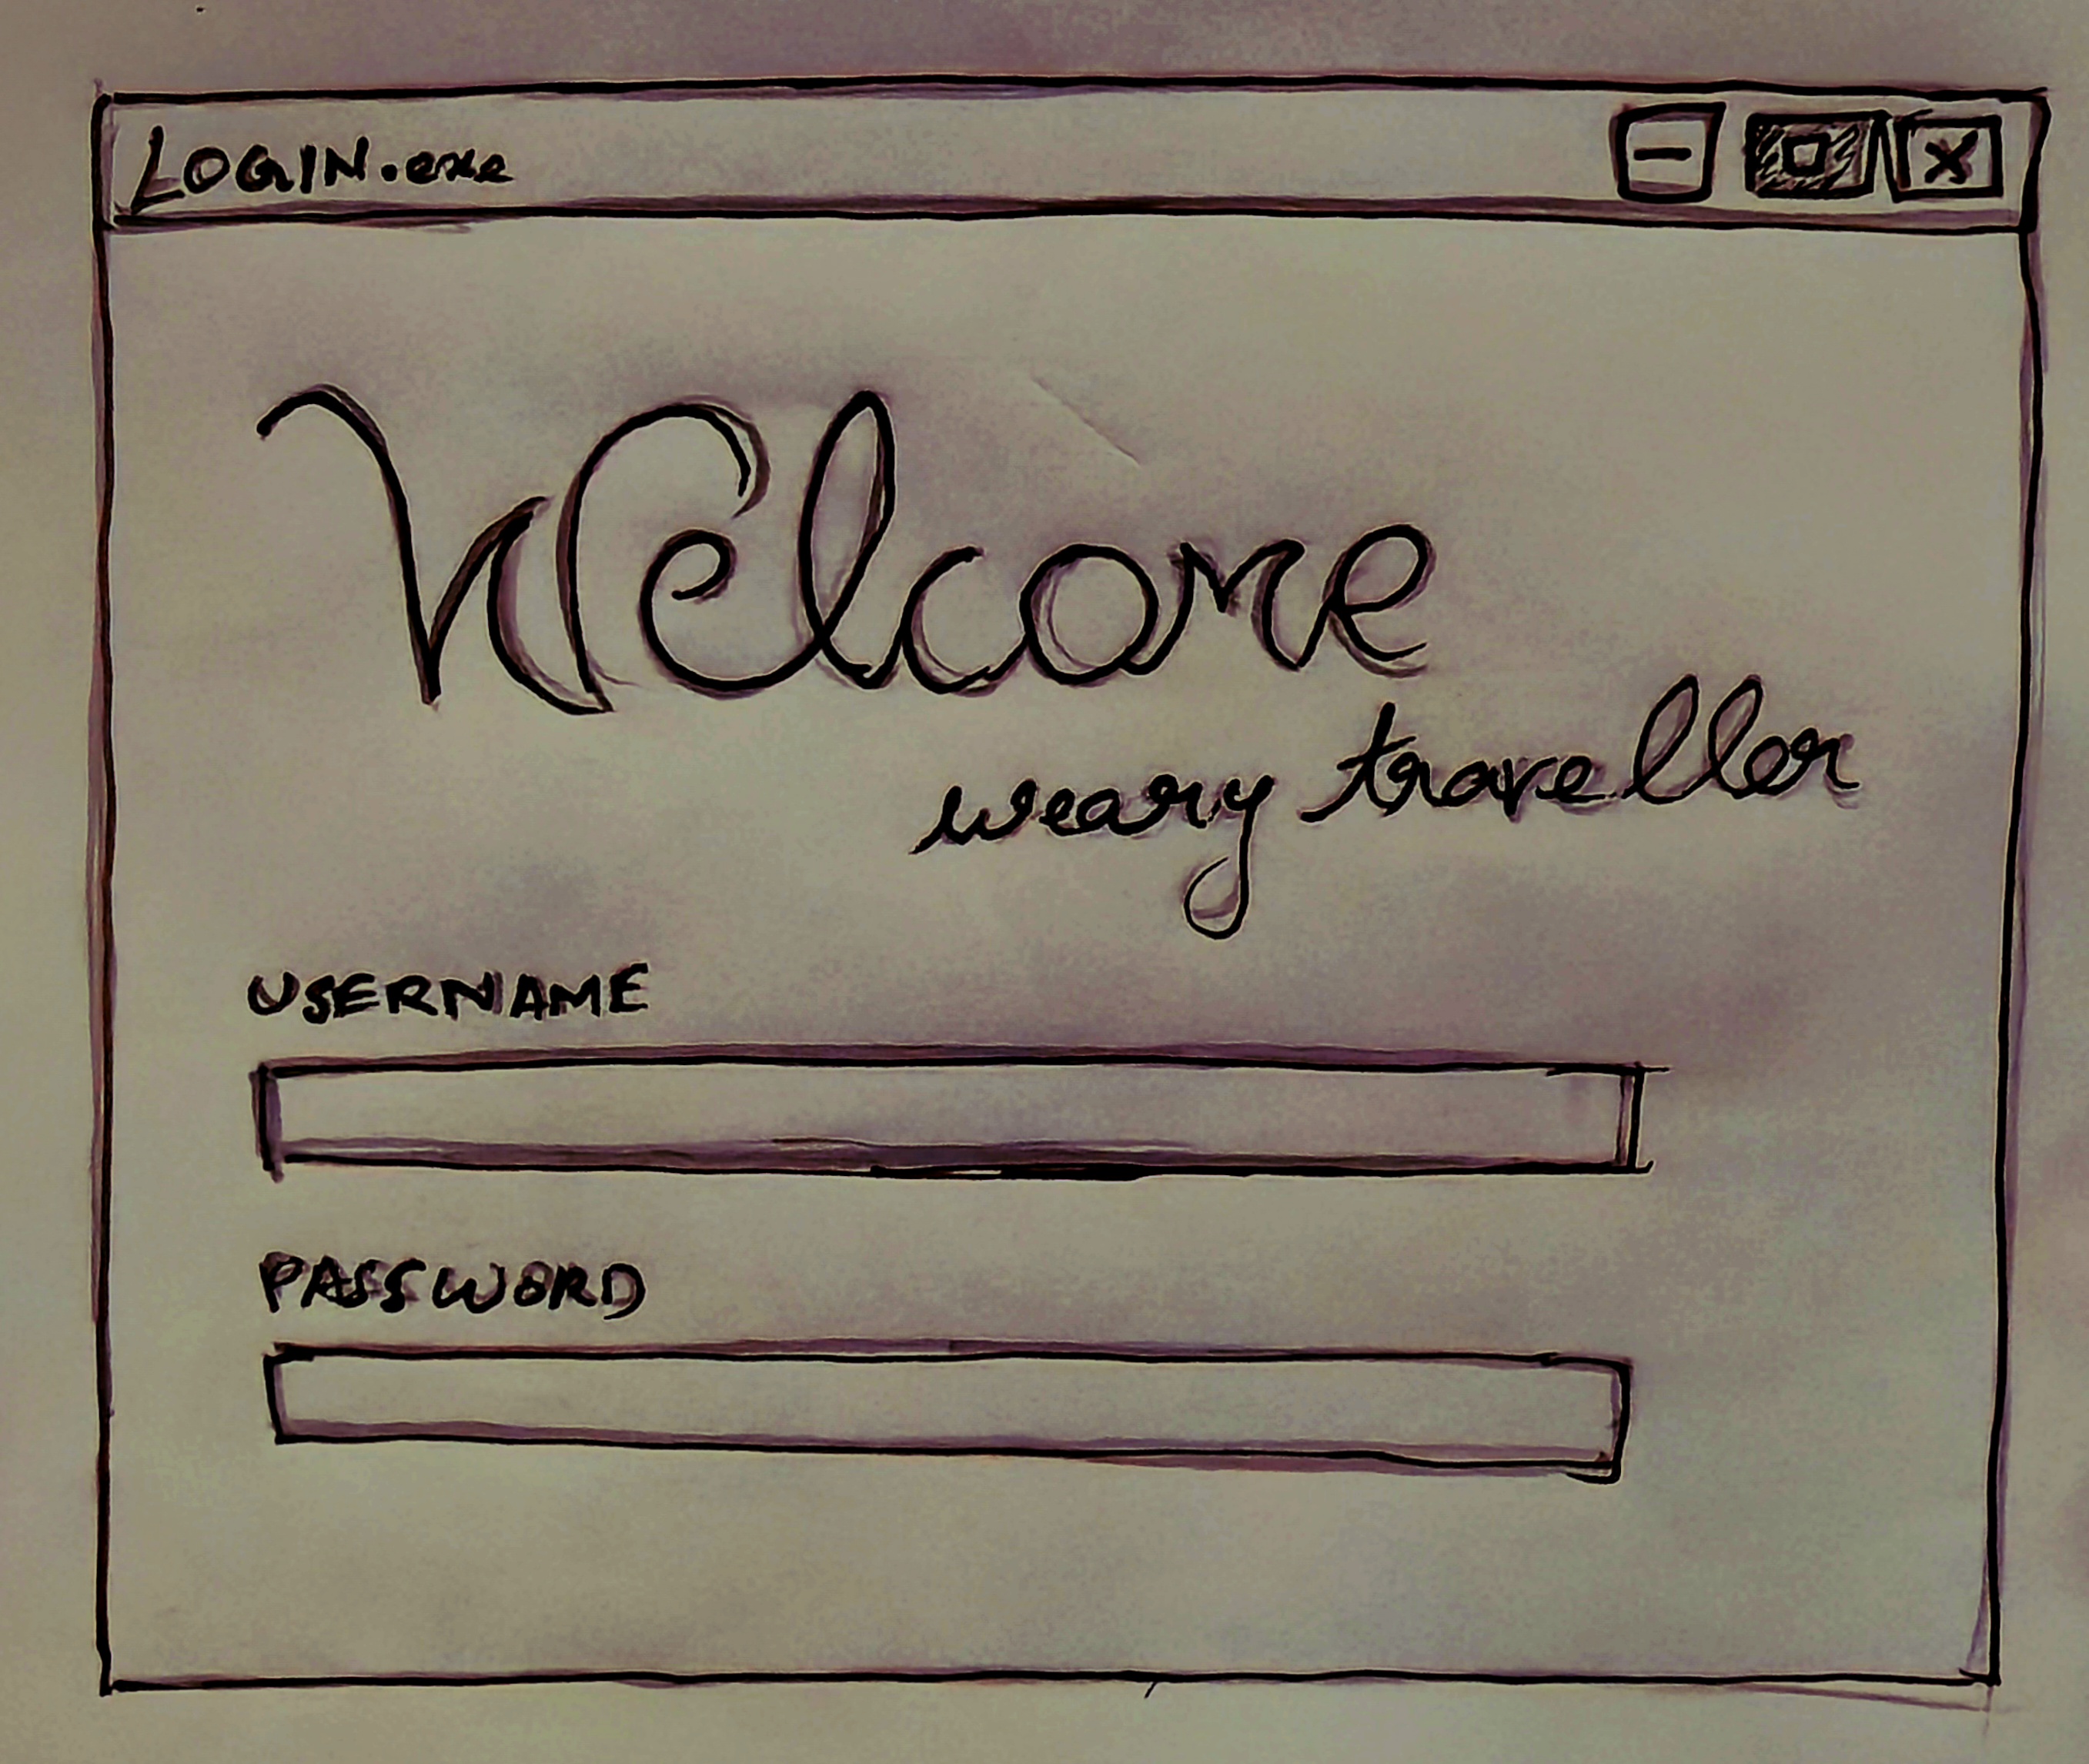 LOGIN.exe
Welcome
weary traveller
USERNAME
PASSWORD